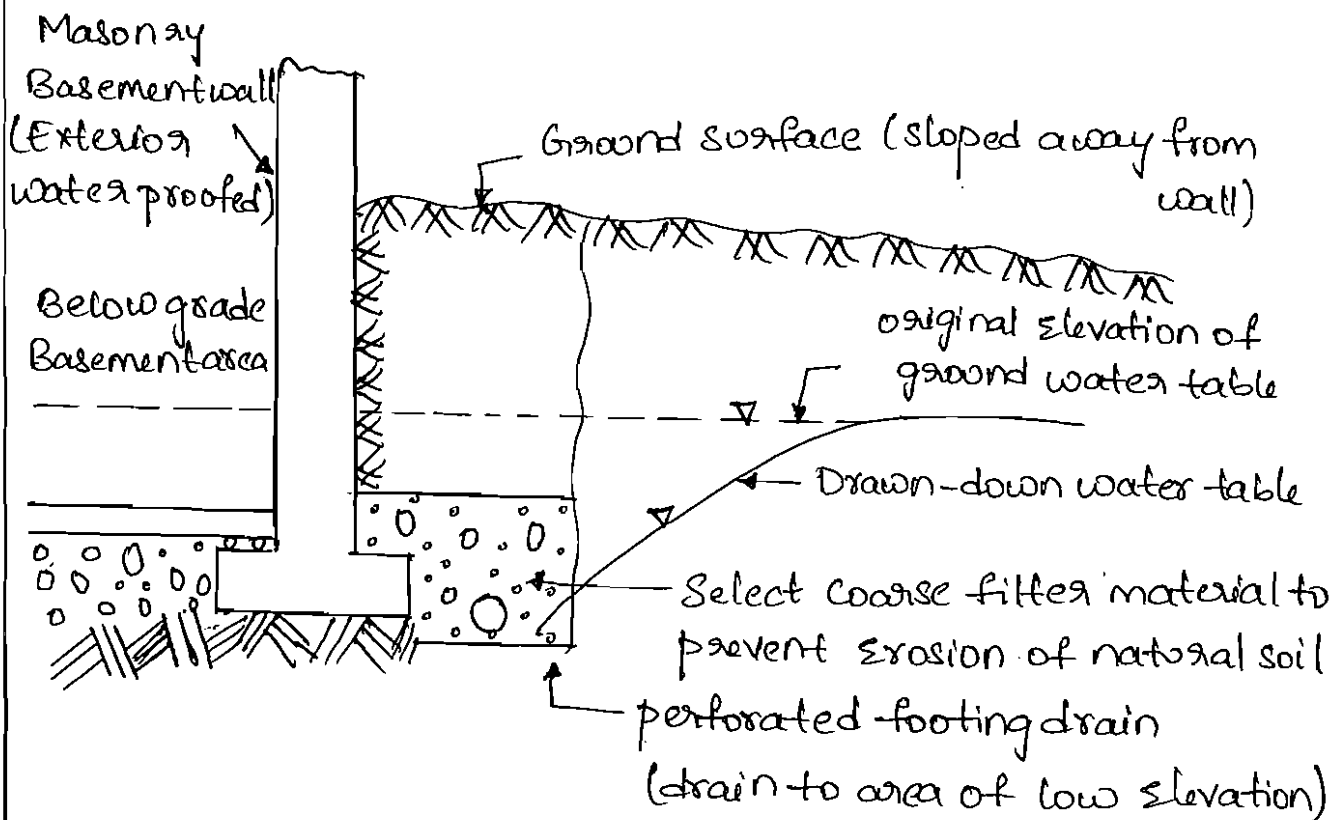 Masonry
Basement wall
(Exterior
water proofed)
Ground surface (sloped away from
wall)
Below grade
Basement area
original Elevation of
ground water table
Drawn-down water table
Select coarse filter material to
prevent Erosion of natural soil
perforated footing drain
(drain to area of low Elevation)